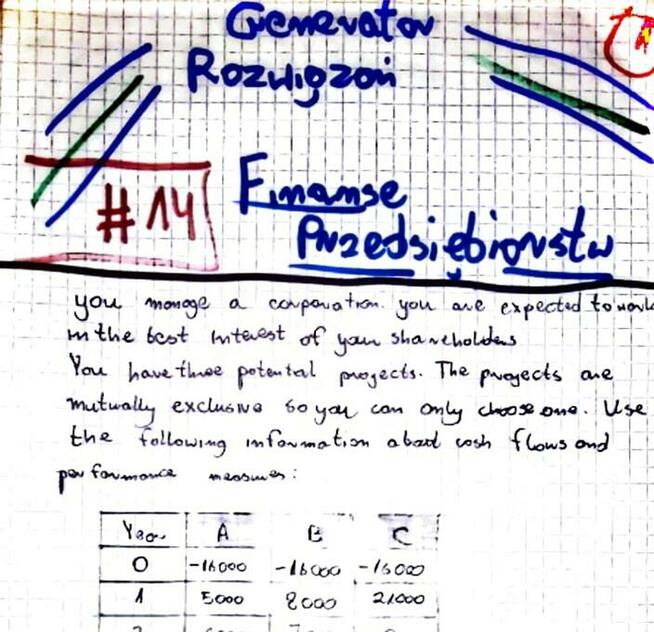 Generator
Rozwiązań
#14
Finanse
Przedsiębiorstw
you manage a corporation. you are expected to work
in the best interest of your shareholders
You have three potential projects. The projects are
mutually exclusive so you can only choose one. Use
the following information about cash flows and
performance measures:
Year A B C
0 -16000 -16000 -15000
1 5000 8000 21000